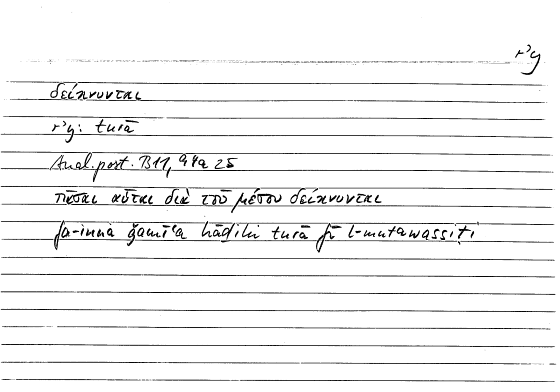 rʾy
δείκνυνται
rʾy: turā
Anal. post. B11, 94a 25
πᾶσαι αὗται διὰ τοῦ μέσου δείκνυνται
fa-inna ǧamīʿa hāḏihi turā fī l-mutawassiṭi